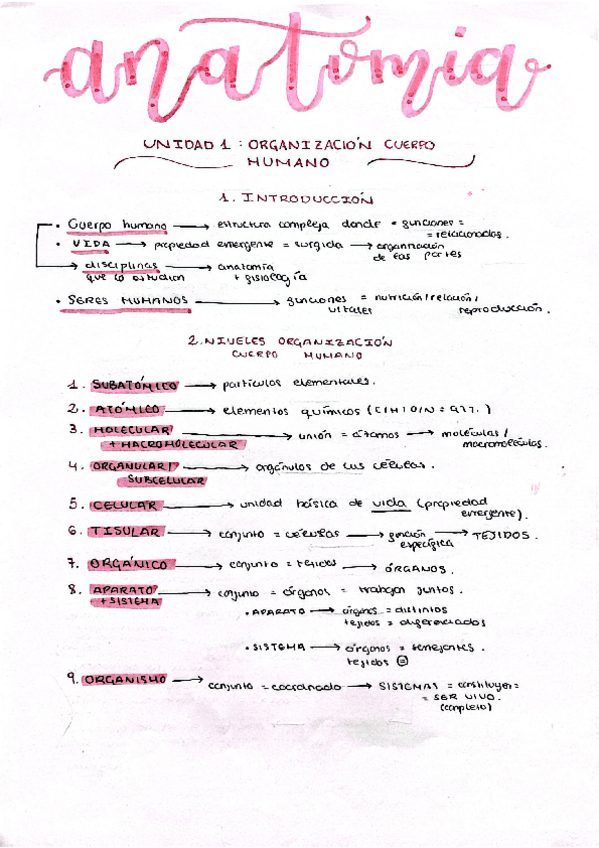 anatomia
UNIDAD 1 : ORGANIZACIÓN CUERPO
HUMANO
1. INTRODUCCIÓN
• Cuerpo humano → estructura compleja donde = funciones =
= relacionadas.
• VIDA → propiedad emergente = surgida → organización
de las partes
→ disciplinas → anatomía
que lo estudian + fisiología
• SERES HUMANOS → funciones = nutrición/relación/
vitales reproducción.
2. NIVELES ORGANIZACIÓN
CUERPO HUMANO
1. SUBATÓMICO → partículas elementales.
2. ATÓMICO → elementos químicos (C/H/O/N = 97%.)
3. MOLECULAR → unión = átomos → moléculas/
+ MACROMOLECULAR macromoléculas.
4. ORGANULAR/ → orgánulos de las células.
SUBCELULAR
5. CELULAR → unidad básica de vida (propiedad
emergente).
6. TISULAR → conjunto = células → función → TEJIDOS.
específica
7. ORGÁNICO → conjunto = tejidos → ÓRGANOS.
8. APARATO → conjunto = órganos = trabajan juntos.
+ SISTEMA
• APARATO → órganos = distintos
tejidos = diferenciados
• SISTEMA → órganos = semejantes.
tejidos =
9. ORGANISMO → conjunto = coordinado → SISTEMAS = constituyen =
= SER VIVO.
(completo)